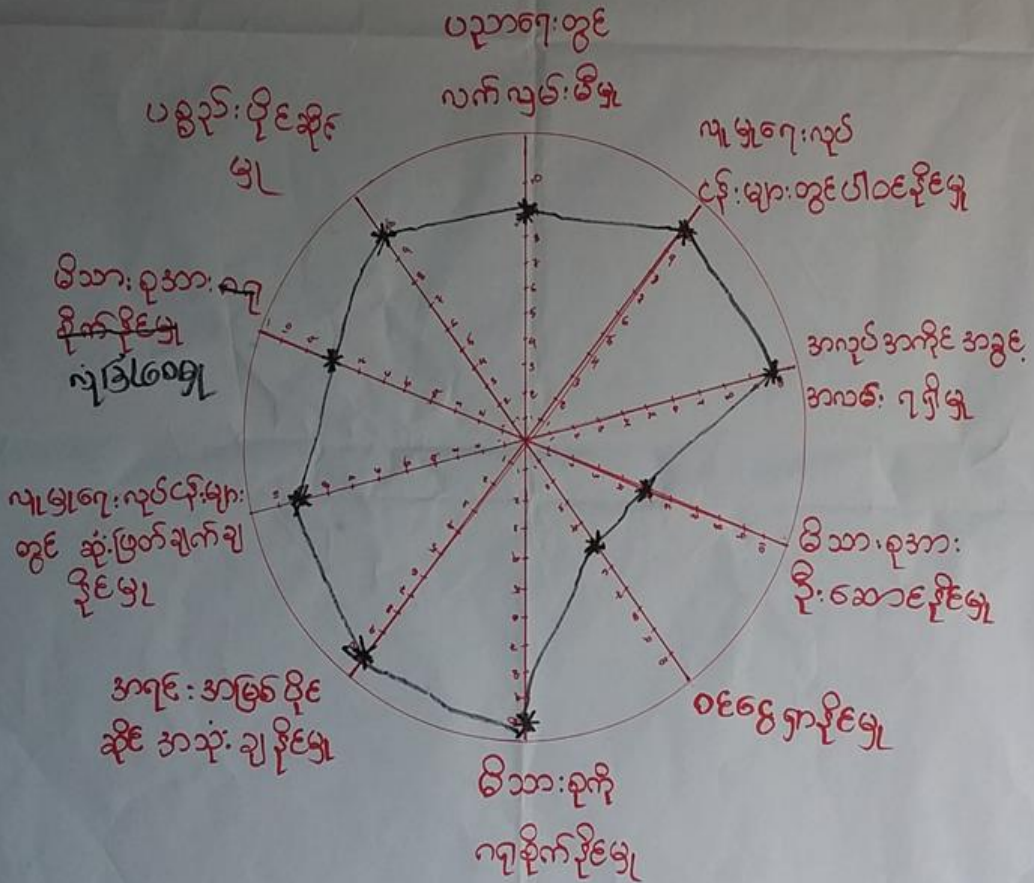 ပညာရေးတွင်
လက်လှမ်းမီမှု
လူမှုရေးလုပ်
ငန်းများတွင်ပါဝင်နိုင်မှု
အလုပ်အကိုင် အခွင့်
အလမ်း ရရှိမှု
မိသားစုအား
ဦးဆောင်နိုင်မှု
ဝင်ငွေရှာနိုင်မှု
မိသားစုကို
ဂရုစိုက်နိုင်မှု
အရင်းအမြစ်ပိုင်
ဆိုင် အသုံးချနိုင်မှု
လူမှုရေးလုပ်ငန်းများ
တွင် ဆုံးဖြတ်ချက်ချ
နိုင်မှု
မိသားစုအား ဂရု
စိုက်နိုင်မှု
လုံခြုံဝေမှု
ပစ္စည်းပိုင်ဆိုင်
မှု